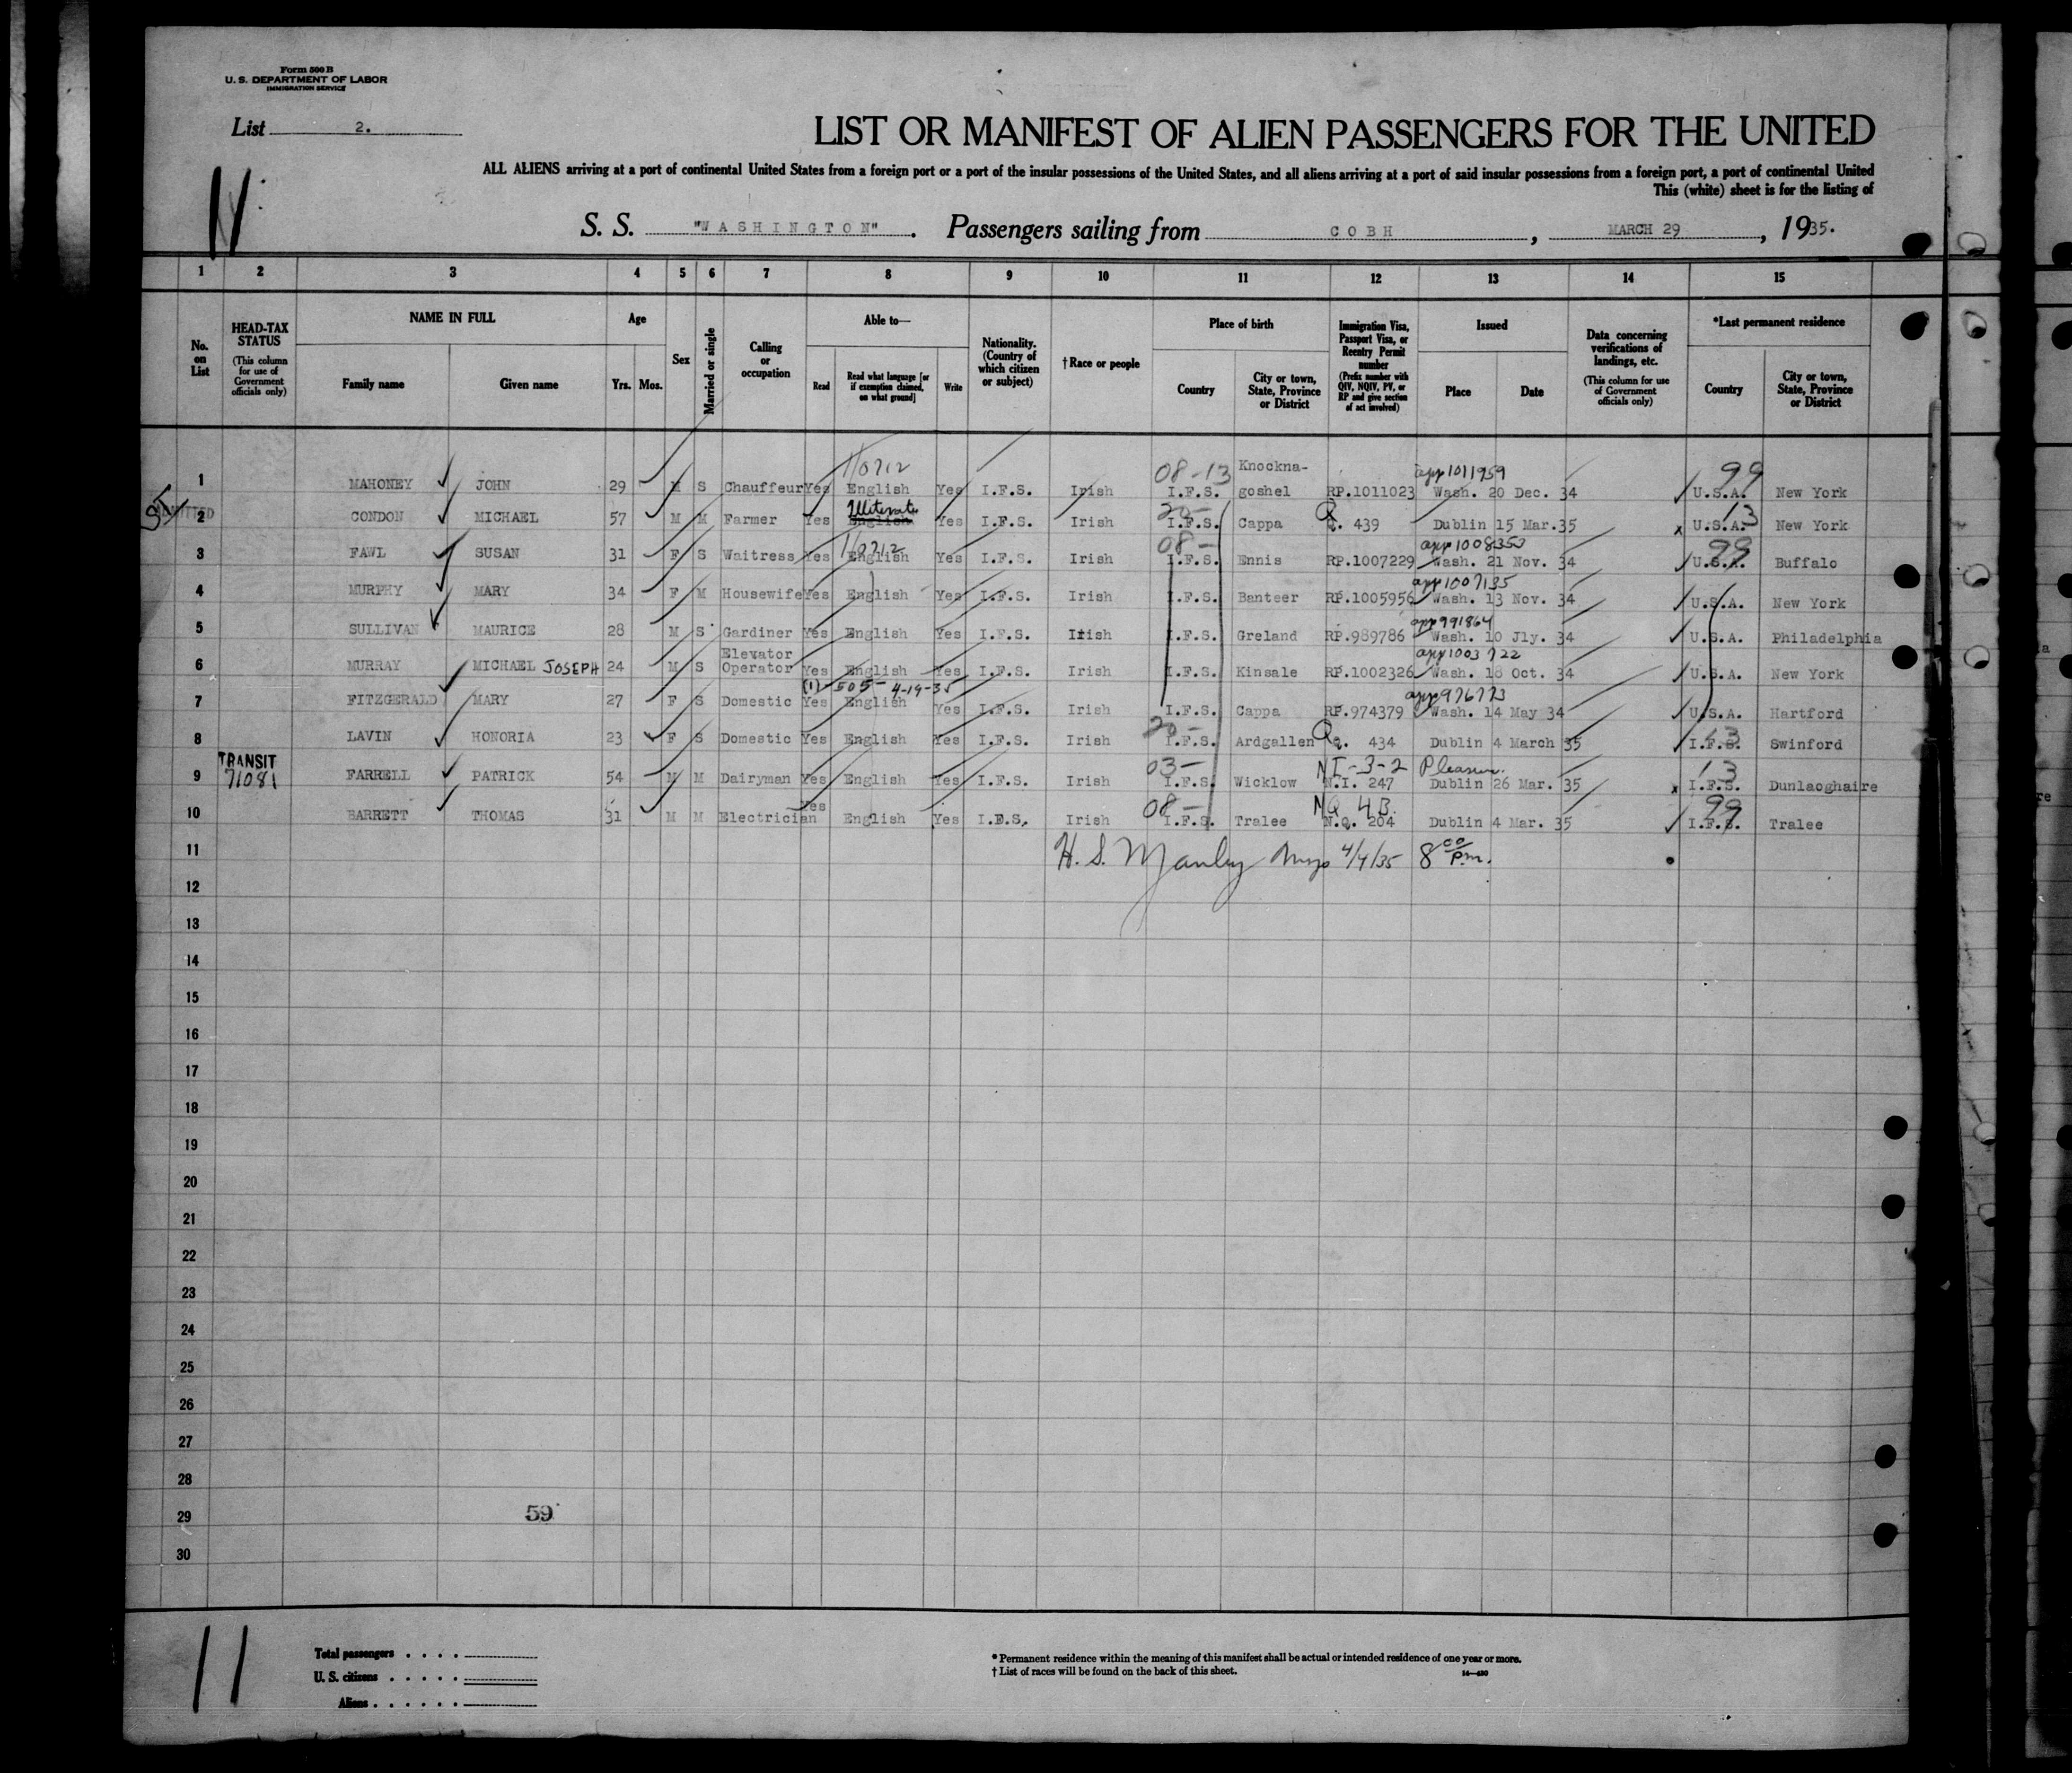 Form 500 B
U. S. DEPARTMENT OF LABOR
IMMIGRATION SERVICE
List 2.
LIST OR MANIFEST OF ALIEN PASSENGERS FOR THE UNITED
ALL ALIENS arriving at a port of continental United States from a foreign port or a port of the insular possessions of the United States, and all aliens arriving at a port of said insular possessions from a foreign port, a port of continental United
This (white) sheet is for the listing of
S. S. "WASHINGTON". Passengers sailing from COBH, MARCH 29, 1935.
1 2 3 4 5 6 7 8 9 10 11 12 13 14 15
No. on List
HEAD-TAX STATUS (This column for use of Government officials only)
NAME IN FULL Family name Given name
Age Yrs. Mos.
Sex
Married or single
Calling or occupation
Able to— Read Read what language [or if exemption claimed, on what ground] Write
Nationality. (Country of which citizen or subject)
†Race or people
Place of birth Country City or town, State, Province or District
Immigration Visa, Passport Visa, or Reentry Permit number (Prefix number with QIV, NQIV, PV, or RP and give section of act involved)
Issued Place Date
Data concerning verifications of landings, etc. (This column for use of Government officials only)
*Last permanent residence Country City or town, State, Province or District
110712 08-13 Knockna- app 1011959 99
1 MAHONEY JOHN 29 M S Chauffeur Yes English Yes I.F.S. Irish I.F.S. goshel RP.1011023 Wash. 20 Dec. 34 U.S.A. New York
Illiterate 20- Q 13
ADMITTED 2 CONDON MICHAEL 57 M M Farmer Yes English Yes I.F.S. Irish I.F.S. Cappa Q. 439 Dublin 15 Mar. 35 x U.S.A. New York
110712 08- app 1008353 99
3 FAWL SUSAN 31 F S Waitress Yes English Yes I.F.S. Irish I.F.S. Ennis RP.1007229 Wash. 21 Nov. 34 U.S.A. Buffalo
app 1007135
4 MURPHY MARY 34 F M Housewife Yes English Yes I.F.S. Irish I.F.S. Banteer RP.1005956 Wash. 13 Nov. 34 U.S.A. New York
app 991864
5 SULLIVAN MAURICE 28 M S Gardiner Yes English Yes I.F.S. Irish I.F.S. Greland RP.989786 Wash. 10 Jly. 34 U.S.A. Philadelphia
Elevator app 1003722
6 MURRAY MICHAEL JOSEPH 24 M S Operator Yes English Yes I.F.S. Irish I.F.S. Kinsale RP.1002326 Wash. 18 Oct. 34 U.S.A. New York
(1)-505- 4-19-35 app 976773
7 FITZGERALD MARY 27 F S Domestic Yes English Yes I.F.S. Irish I.F.S. Cappa RP.974379 Wash. 14 May 34 U.S.A. Hartford
20- Q 13
8 LAVIN HONORIA 23 F S Domestic Yes English Yes I.F.S. Irish I.F.S. Ardgallen Q. 434 Dublin 4 March 35 I.F.S. Swinford
TRANSIT 03- NI-3-2 Pleasure. 13
71081 9 FARRELL PATRICK 54 M M Dairyman Yes English Yes I.F.S. Irish I.F.S. Wicklow N.I. 247 Dublin 26 Mar. 35 x I.F.S. Dunlaoghaire
08- NQ 4B. 99
10 BARRETT THOMAS 31 M M Electrician Yes English Yes I.F.S. Irish I.F.S. Tralee N.Q. 204 Dublin 4 Mar. 35 I.F.S. Tralee
11 H. S. Manley 4/4/35 8 00 P.m.
12
13
14
15
16
17
18
19
20
21
22
23
24
25
26
27
28
29 59
30
11
Total passengers
U. S. citizens
Aliens
* Permanent residence within the meaning of this manifest shall be actual or intended residence of one year or more.
† List of races will be found on the back of this sheet.
14—430